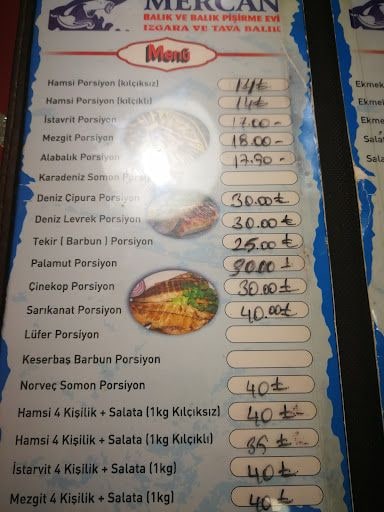 MERCAN
BALIK VE BALIK PİŞİRME EVİ
IZGARA VE TAVA BALIK
Menü
Hamsi Porsiyon (kılçıksız) 14₺
Hamsi Porsiyon (kılçıklı) 14₺
İstavrit Porsiyon 17.00-
Mezgit Porsiyon 18.00-
Alabalık Porsiyon 17.50-
Karadeniz Somon
Deniz Çipura Porsiyon 30.00₺
Deniz Levrek Porsiyon 30.00₺
Tekir ( Barbun ) Porsiyon 25.00₺
Palamut Porsiyon 30.00₺
Çinekop Porsiyon 30.00₺
Sarıkanat Porsiyon 40.00₺
Lüfer Porsiyon
Keserbaş Barbun Porsiyon
Norveç Somon Porsiyon 40₺
Hamsi 4 Kişilik + Salata (1kg Kılçıksız) 40₺
Hamsi 4 Kişilik + Salata (1kg Kılçıklı) ₺
İstarvit 4 Kişilik + Salata (1kg) 40₺
Mezgit 4 Kişilik + Salata (1kg) 40₺
Ekmek
Ekme
Ekme
Sala
Sala